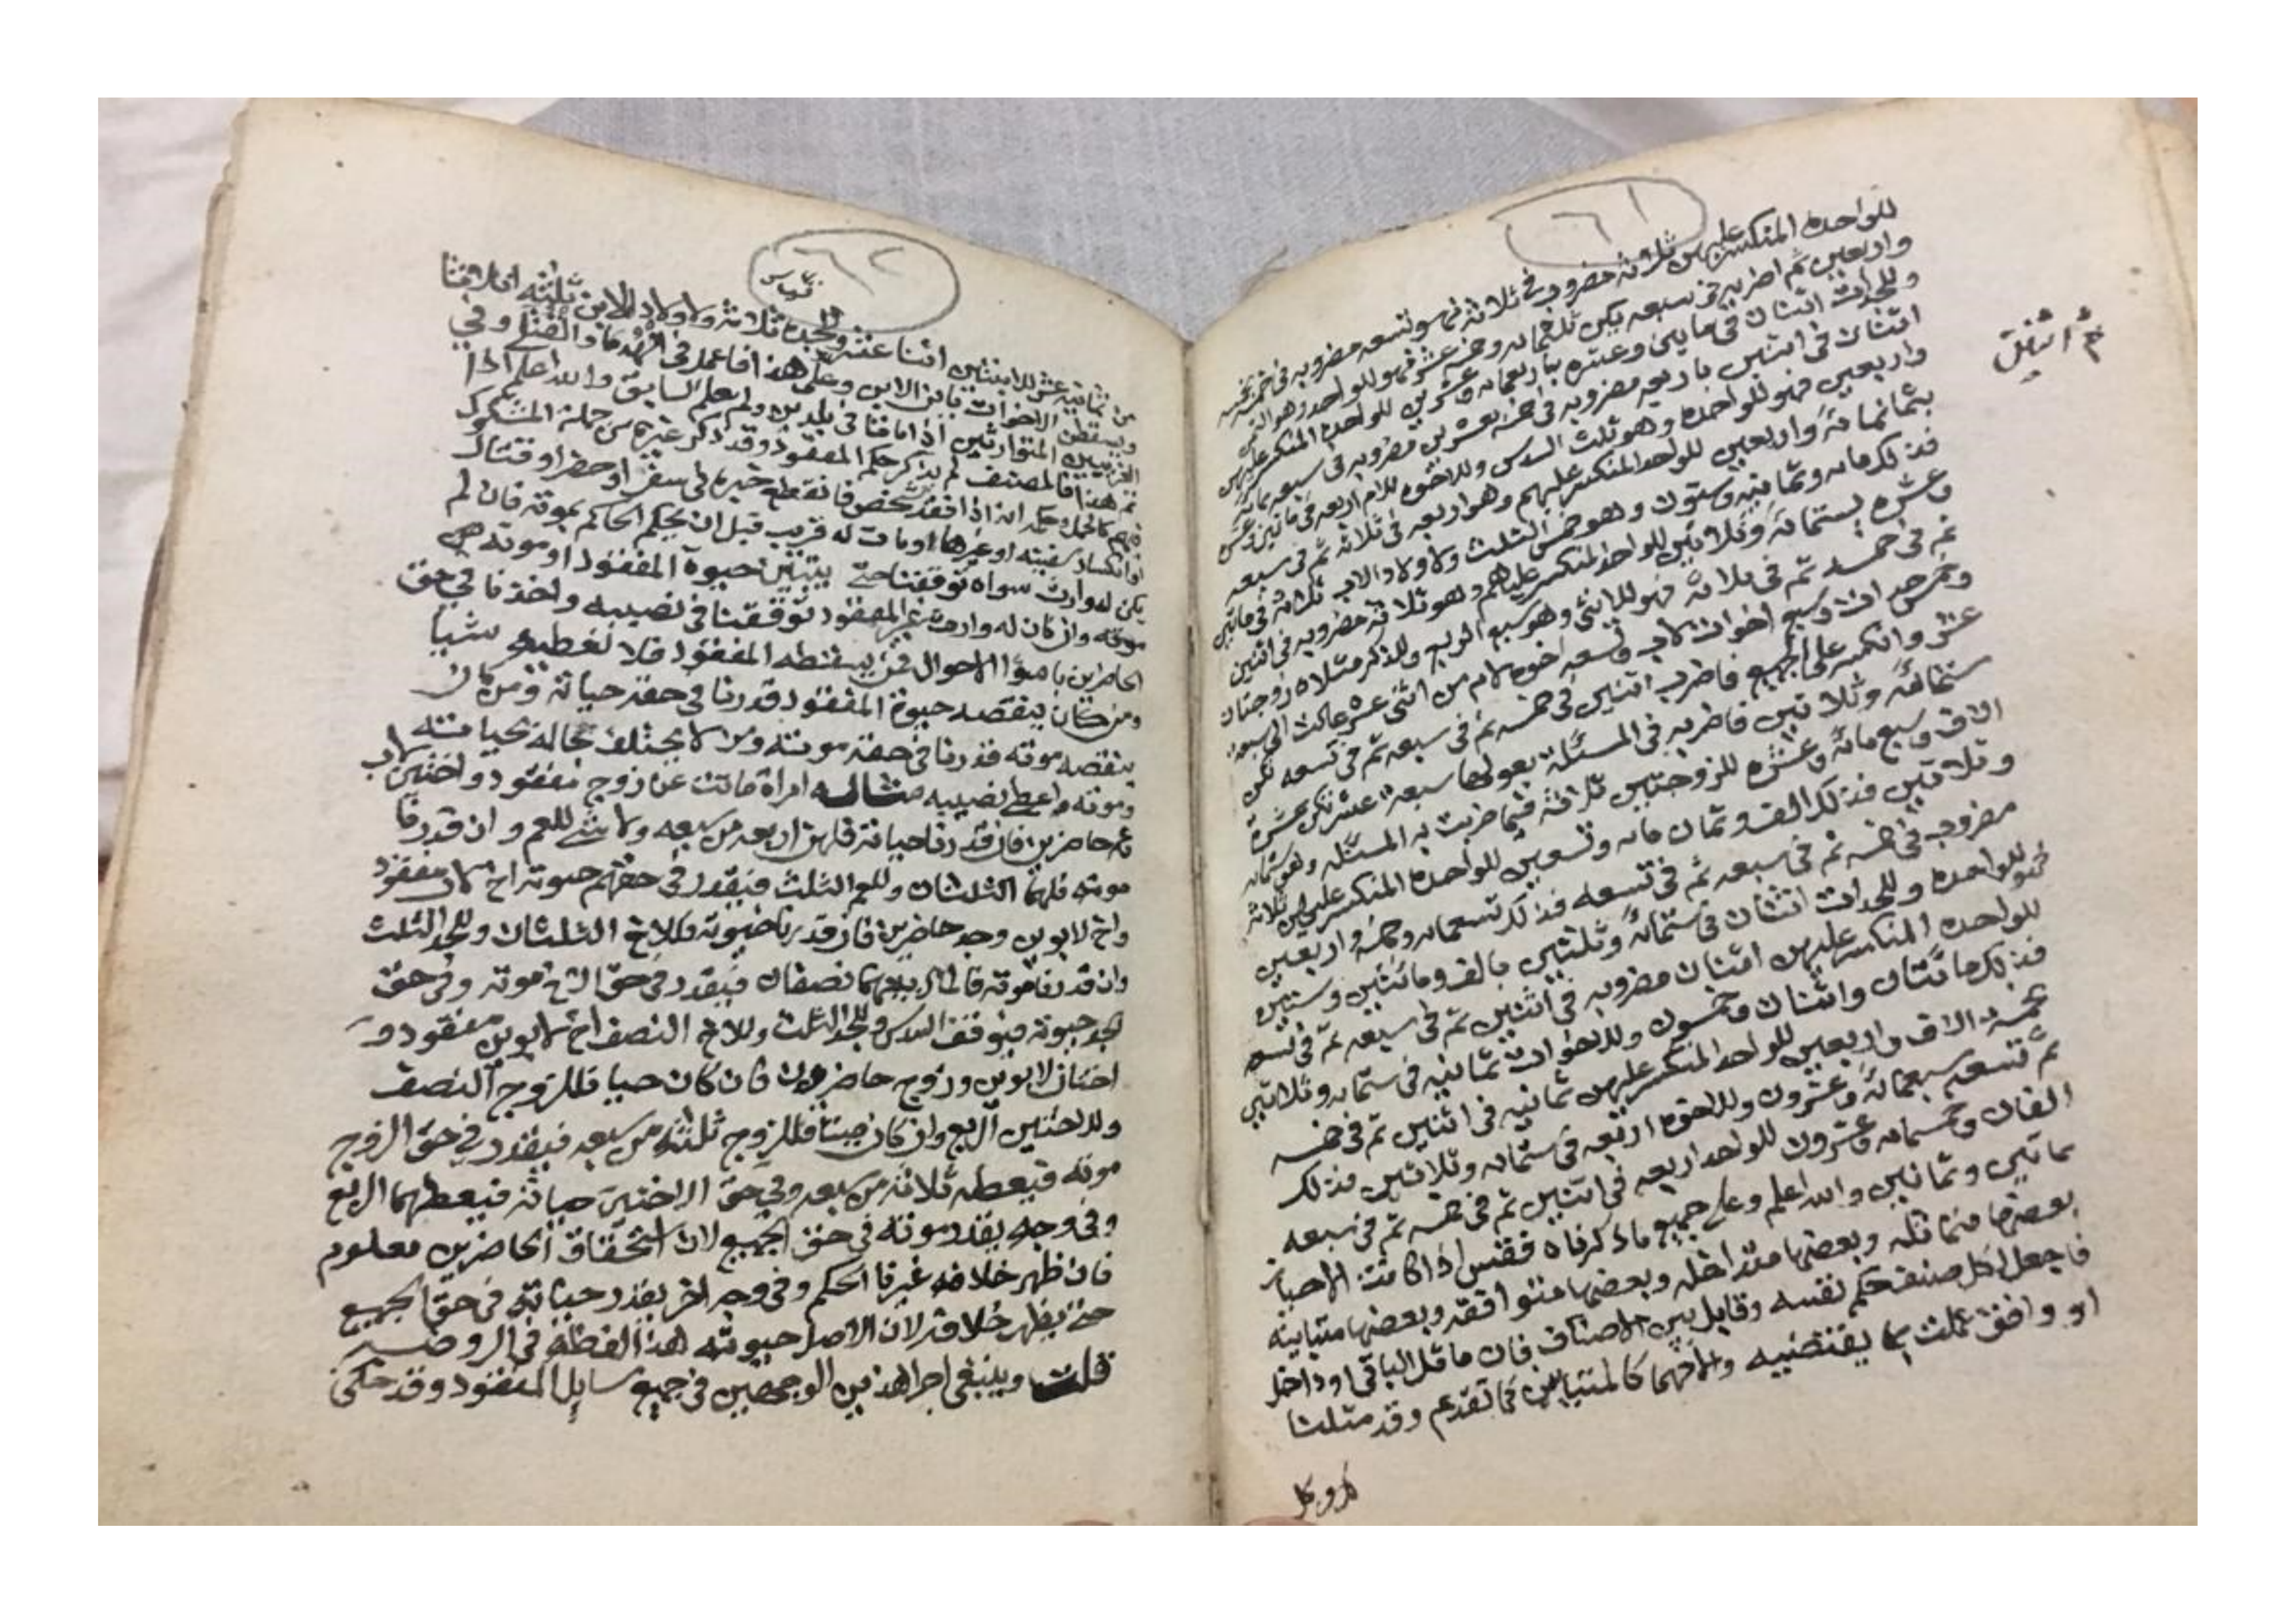 ٦١
للواحده المنكسر عليهن ثلاثة مضروب في ثلاثه فهو تسعه مضروبه في خمسه بخمسه
واربعين ثم اضربه في سبعه يكن ثلثمائه وخمسه عشر فهو للواحد وهو الثمن
وللجدات اثنتان في مايتين وعشره باربعمائه وعشرين للواحده المنكسر عليهن
اثنتان في اثنتين باربعه مضروبه في خمسه بعشرين مضروبه في سبعه بمائه
واربعين فهو للواحده وهو ثلث السدس وللاخوه للام اربعه في مائتين وعشره
بثمانمائة واربعين للواحد المنكسر عليهم وهو اربعه في ثلاثه ثم في سبعه
فذلك مائه وثمانيه وستون وهو خمس الثلث ولاولاد الاب ثلاثة في مائتين
وعشره بستمائه وثلاثين للواحد المنكسر عليهم وهو ثلاثة مضروبه في اثنين
ثم في خمسه ثم في ثلاثة فهو للانثى وهو سبع الربع وللذكر مثلاه زوجتان
وخمس جدات وسبع اخوات لاب وتسعه اخوه لام من اثنى عشر عالت الى سبعة
عشر وانكسر على الجميع فاضرب اثنين في خمسه ثم في سبعه ثم في تسعه تكن
ستمائه وثلاثين فاضربه في المسئلة بعولها سبعه عشر تكن عشرة
الاف وسبع مائة وعشره للزوجتين ثلاثة فيما ضربت به المسئله وهو ستمائه
وثلاثين فذلك الف وثمان مائه وتسعين للواحده المنكسر عليهن ثلاثة
مضروب في خمسه ثم في سبعه ثم في تسعه فذلك تسعمائه وخمسة واربعين
فهو للواحده وللجدات اثنتان في ستمائة وثلثين بالف ومائتين وستين
للواحده المنكسر عليهن اثنتان مضروبه في اثنتين ثم في سبعه ثم في تسعه
فذلك مائتان واثنتان وخمسون وللاخوات ثمانيه في ستمائه وثلاثين
بخمسه الاف واربعين للواحد المنكسر عليهن ثمانيه في اثنين ثم في خمسه
ثم تسعه سبعمائة وعشرون وللاخوه اربعه في ستمائه وثلاثين فذلك
الفان وخمسمائه وعشرون للواحد اربعه في اثنين ثم في خمسه ثم في سبعه
بمائتين وثمانين والله اعلم وعلى جميع ما ذكرناه فقس اذا كانت الاحياز
بعضها متماثله وبعضها متداخله وبعضها متوافقه وبعضها متباينه
فاجعل لكل صنف حكم نفسه وقابل بين الاصناف فان ماثل الباقي او داخل
او وافق عملت بما يقتضيه والا فهما كالمتباين كما تقدم وقد مثلنا
٦٢
من ثمانية عشر للابنتين اثنا عشر وللجده ثلاثة ولاولاد الابن ثلثه
ويسقطن الاخوات بابن الابن وعلى هذا فاعمل في الهدما والقتلى وفي
الغريبين المتوارثين اذا ماتا في بلدين ولم يعلم السابق والله اعلم اذا
ثم هذا فالمصنف لم يذكر حكم المفقود وقد ذكر غيره من جملة المشكوك
كالحمل حكمه انه اذا افقد شخص فانقطع خبره في سفر او حضر او قتال
او انكسار سفينه او غيرها او مات له قريب قبل ان يحكم الحاكم بموته فان لم
يكن له وارث سواه توقفنا حتى يتبين حيوة المفقود او موته
موته وان كان له وارث غير المفقود توقفنا في نصيبه واخذنا في حق
الحاضرين باسوأ الاحوال فمن يسقطه المفقود فلا نعطيه شيا
ومن كان ينقصه حيوة المفقود قدرنا في حقه حياته ومن كان
ينقصه موته قدرنا في حقه موته ومن لا يختلف حاله بحياته
وموته واعطى نصيبه مثاله امراة ماتت عن زوج مفقود واختين لاب
وعم حاضرين فان قدرنا حياته فلهن اربعه من سبعه ولا شي للعم وان قدرنا
موته فلهما الثلثان وللعم الثلث فيقدر في حقهم حيوته اخ لاب مفقود
واخ لابوين وجد حاضرين فان قدرنا حيوته فللاخ الثلثان وللجد الثلث
وان قدرنا موته فالمال بينهما نصفان فيقدر في حق الاخ موته وفي حق
الجد حيوته فيوقف السدس وللجد الثلث وللاخ النصف اخ لابوين مفقود و
اختان لابوين وزوج حاضرون فان كان حيا فللزوج النصف
وللاختين الربع وان كان ميتا فللزوج ثلثه من سبعه فيقدر في حق الزوج
موته فيعطى ثلاثة من سبعه وفي حق الاختين حياته فيعطيهما الربع
وفي وجه يقدر موته في حق الجميع لان استحقاق الحاضرين معلوم
فان ظهر خلافه غيرنا الحكم وفي وجه اخر يقدر حياته في حق الجميع
حتى يظهر خلافه لان الاصل حيوته هذا لفظه في الروضه
قلت وينبغي اجرا هذين الوجهين في جميع مسايل المفقود وقد حكى